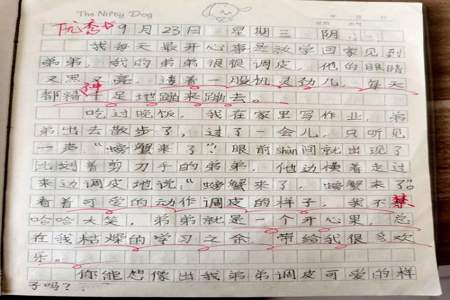 The Nifty Dog
9月23日 星期三 阴
我每天最开心事是放学回家见到
弟弟，我的弟弟很很调皮，他的眼睛
又黑又亮，透着一股机灵劲儿，每天
都精神十足地蹦来蹦去。
吃过晚饭，我在家里写作业，弟
弟出去散步了，过了一会儿，只听见
一声“螃蟹来了”眼前shùn间就出现了
比划着剪刀手的弟弟，他边横着走过
来边调皮地说：“螃蟹来了，螃蟹来了”
看着可爱的动作调皮的样子，我不禁
哈哈大笑，弟弟就是一个开心果，总
在我枯燥的学习之余，带给我很多欢
乐。
你能想像出我弟弟调皮可爱的样
子吗？